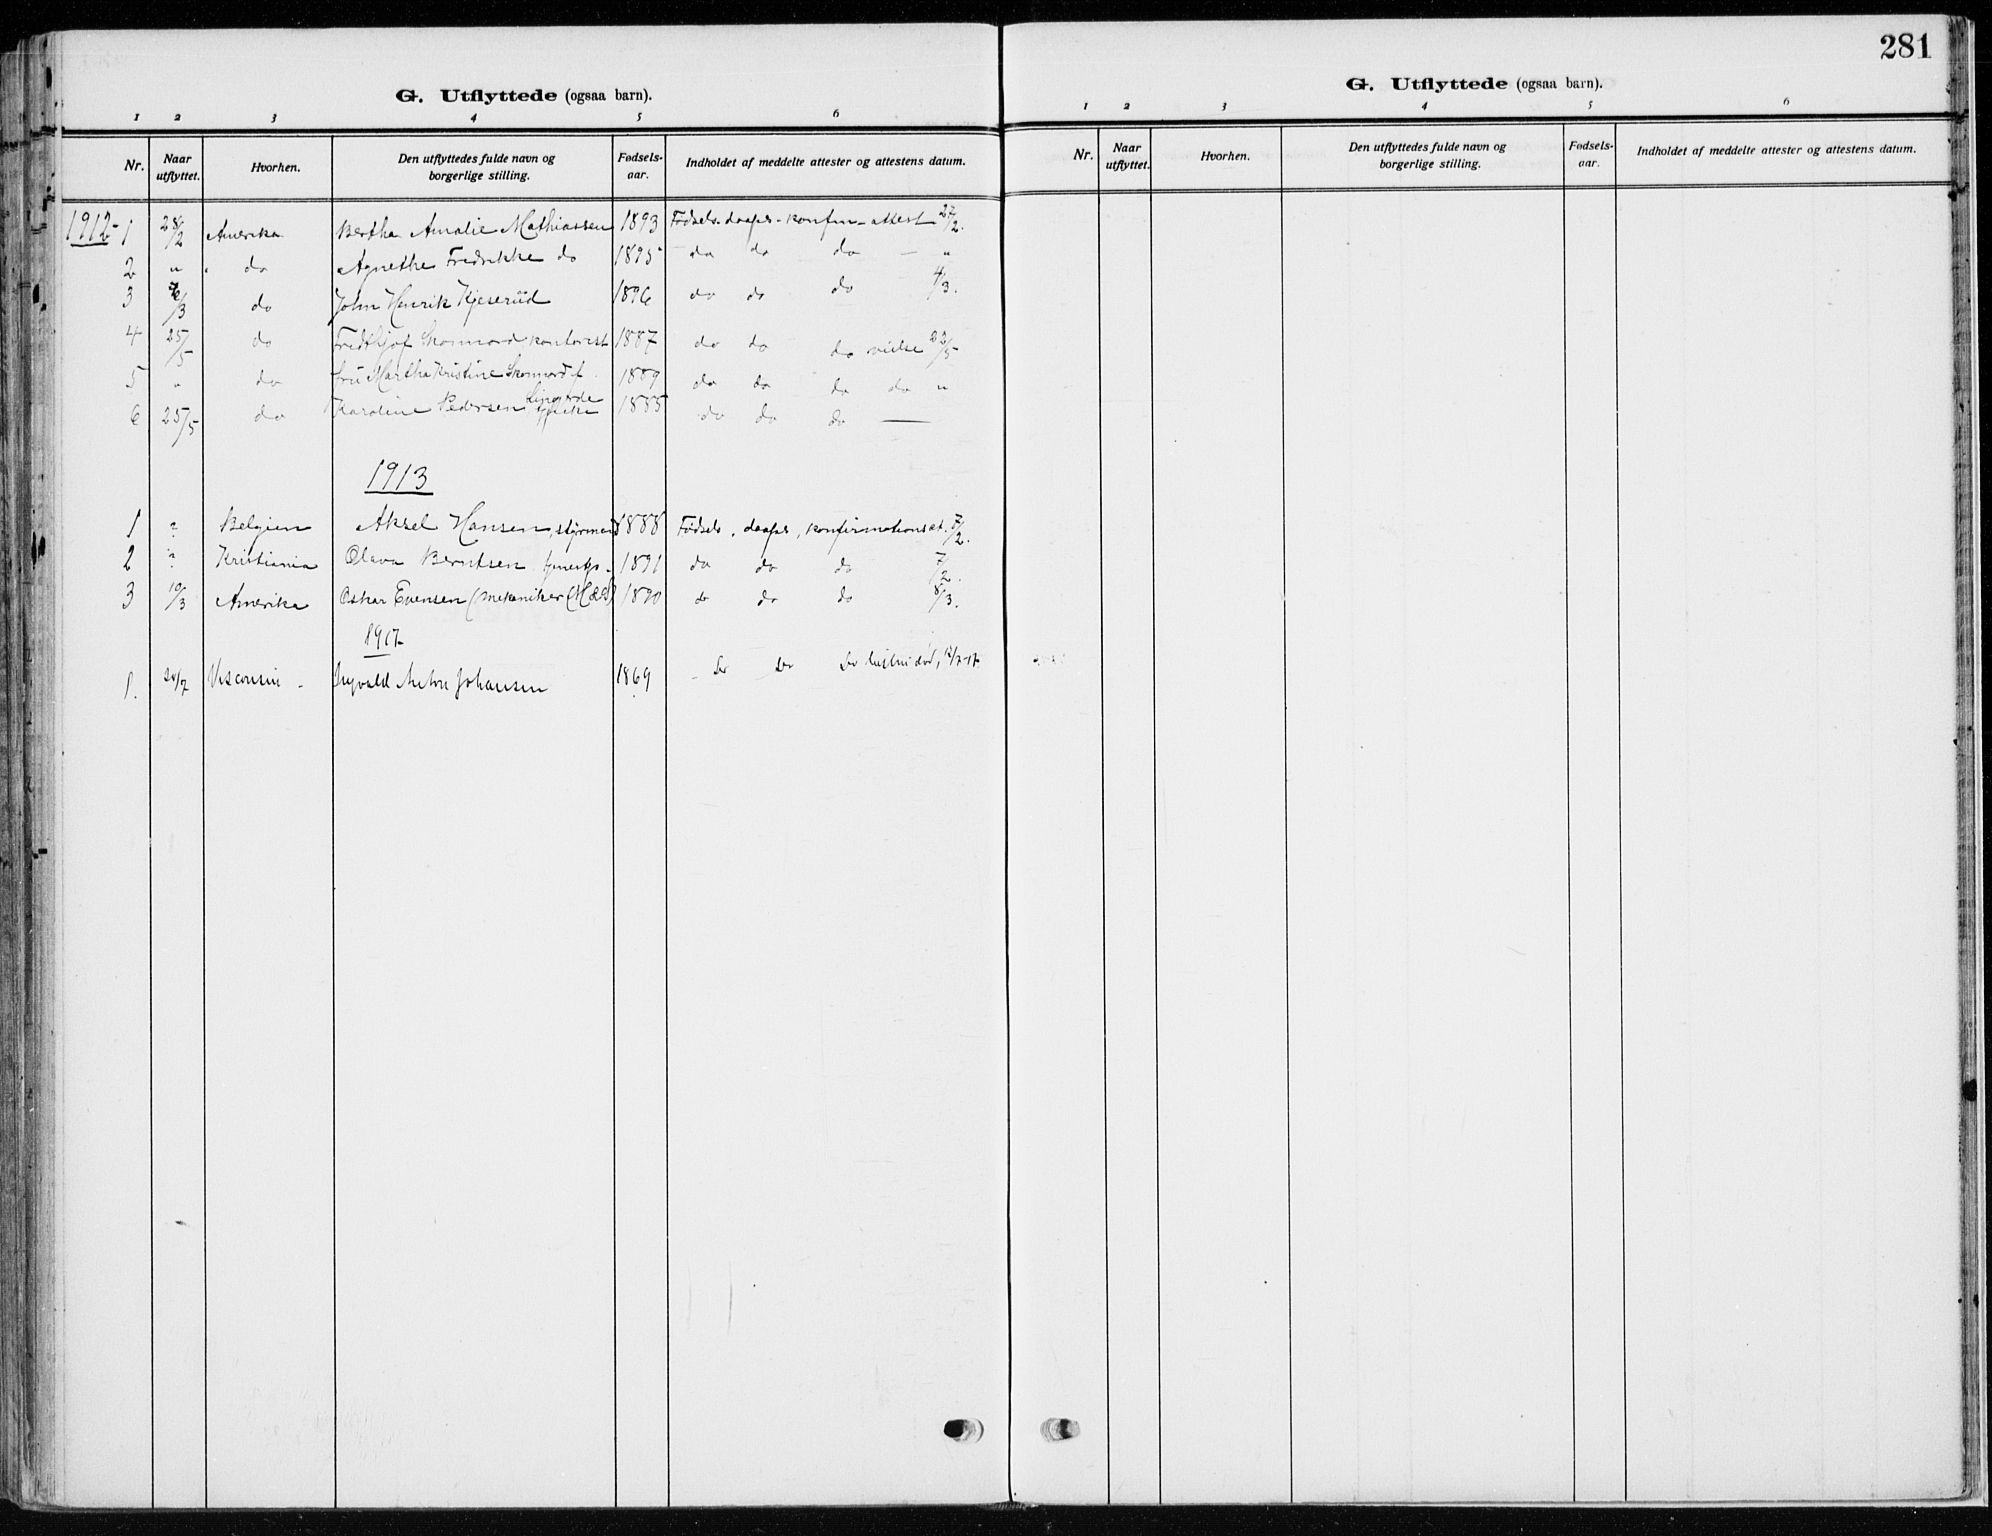 281
G. Utflyttede (ogsaa barn).
1 2 3 4 5 6
Nr. Naar utflyttet. Hvorhen. Den utflyttedes fulde navn og borgerlige stilling. Fødsels-aar. Indholdet af meddelte attester og attestens datum.
1912- 1 28/2 Amerika Bertha Amalie Mathiassen 1893 Fødsels- daaps- konfirm- attest 27/2.
2 " do Agnethe Fredrikke do 1895 do do do — "
3 /3 do John Henrik Kjeserud 1896 do do do 4/3.
4 25/5 do Fredthjof Skonnord kontorist 1887 do do do vielse 22/5
5 " do fru Martha Kristine Skonnord f. 1889 do do do do "
6 25/5 do Karoline Pedersen 1885 do do do —
1913
1 ? Belgien Aksel Hansen, styrmand 1888 Fødsels, daaps, konfirmationsat. 7/2.
2 ? Kristiania Olava Berntsen 1891 do do do 7/2.
3 10/3 Amerika Oskar Evensen (mekaniker 1890 do do do 8/3.
1917
1. 20/7 Visconsin - Ingvald Anton Johansen 1869 - do do do
G. Utflyttede (ogsaa barn).
1 2 3 4 5 6
Nr. Naar utflyttet. Hvorhen. Den utflyttedes fulde navn og borgerlige stilling. Fødsels-aar. Indholdet af meddelte attester og attestens datum.